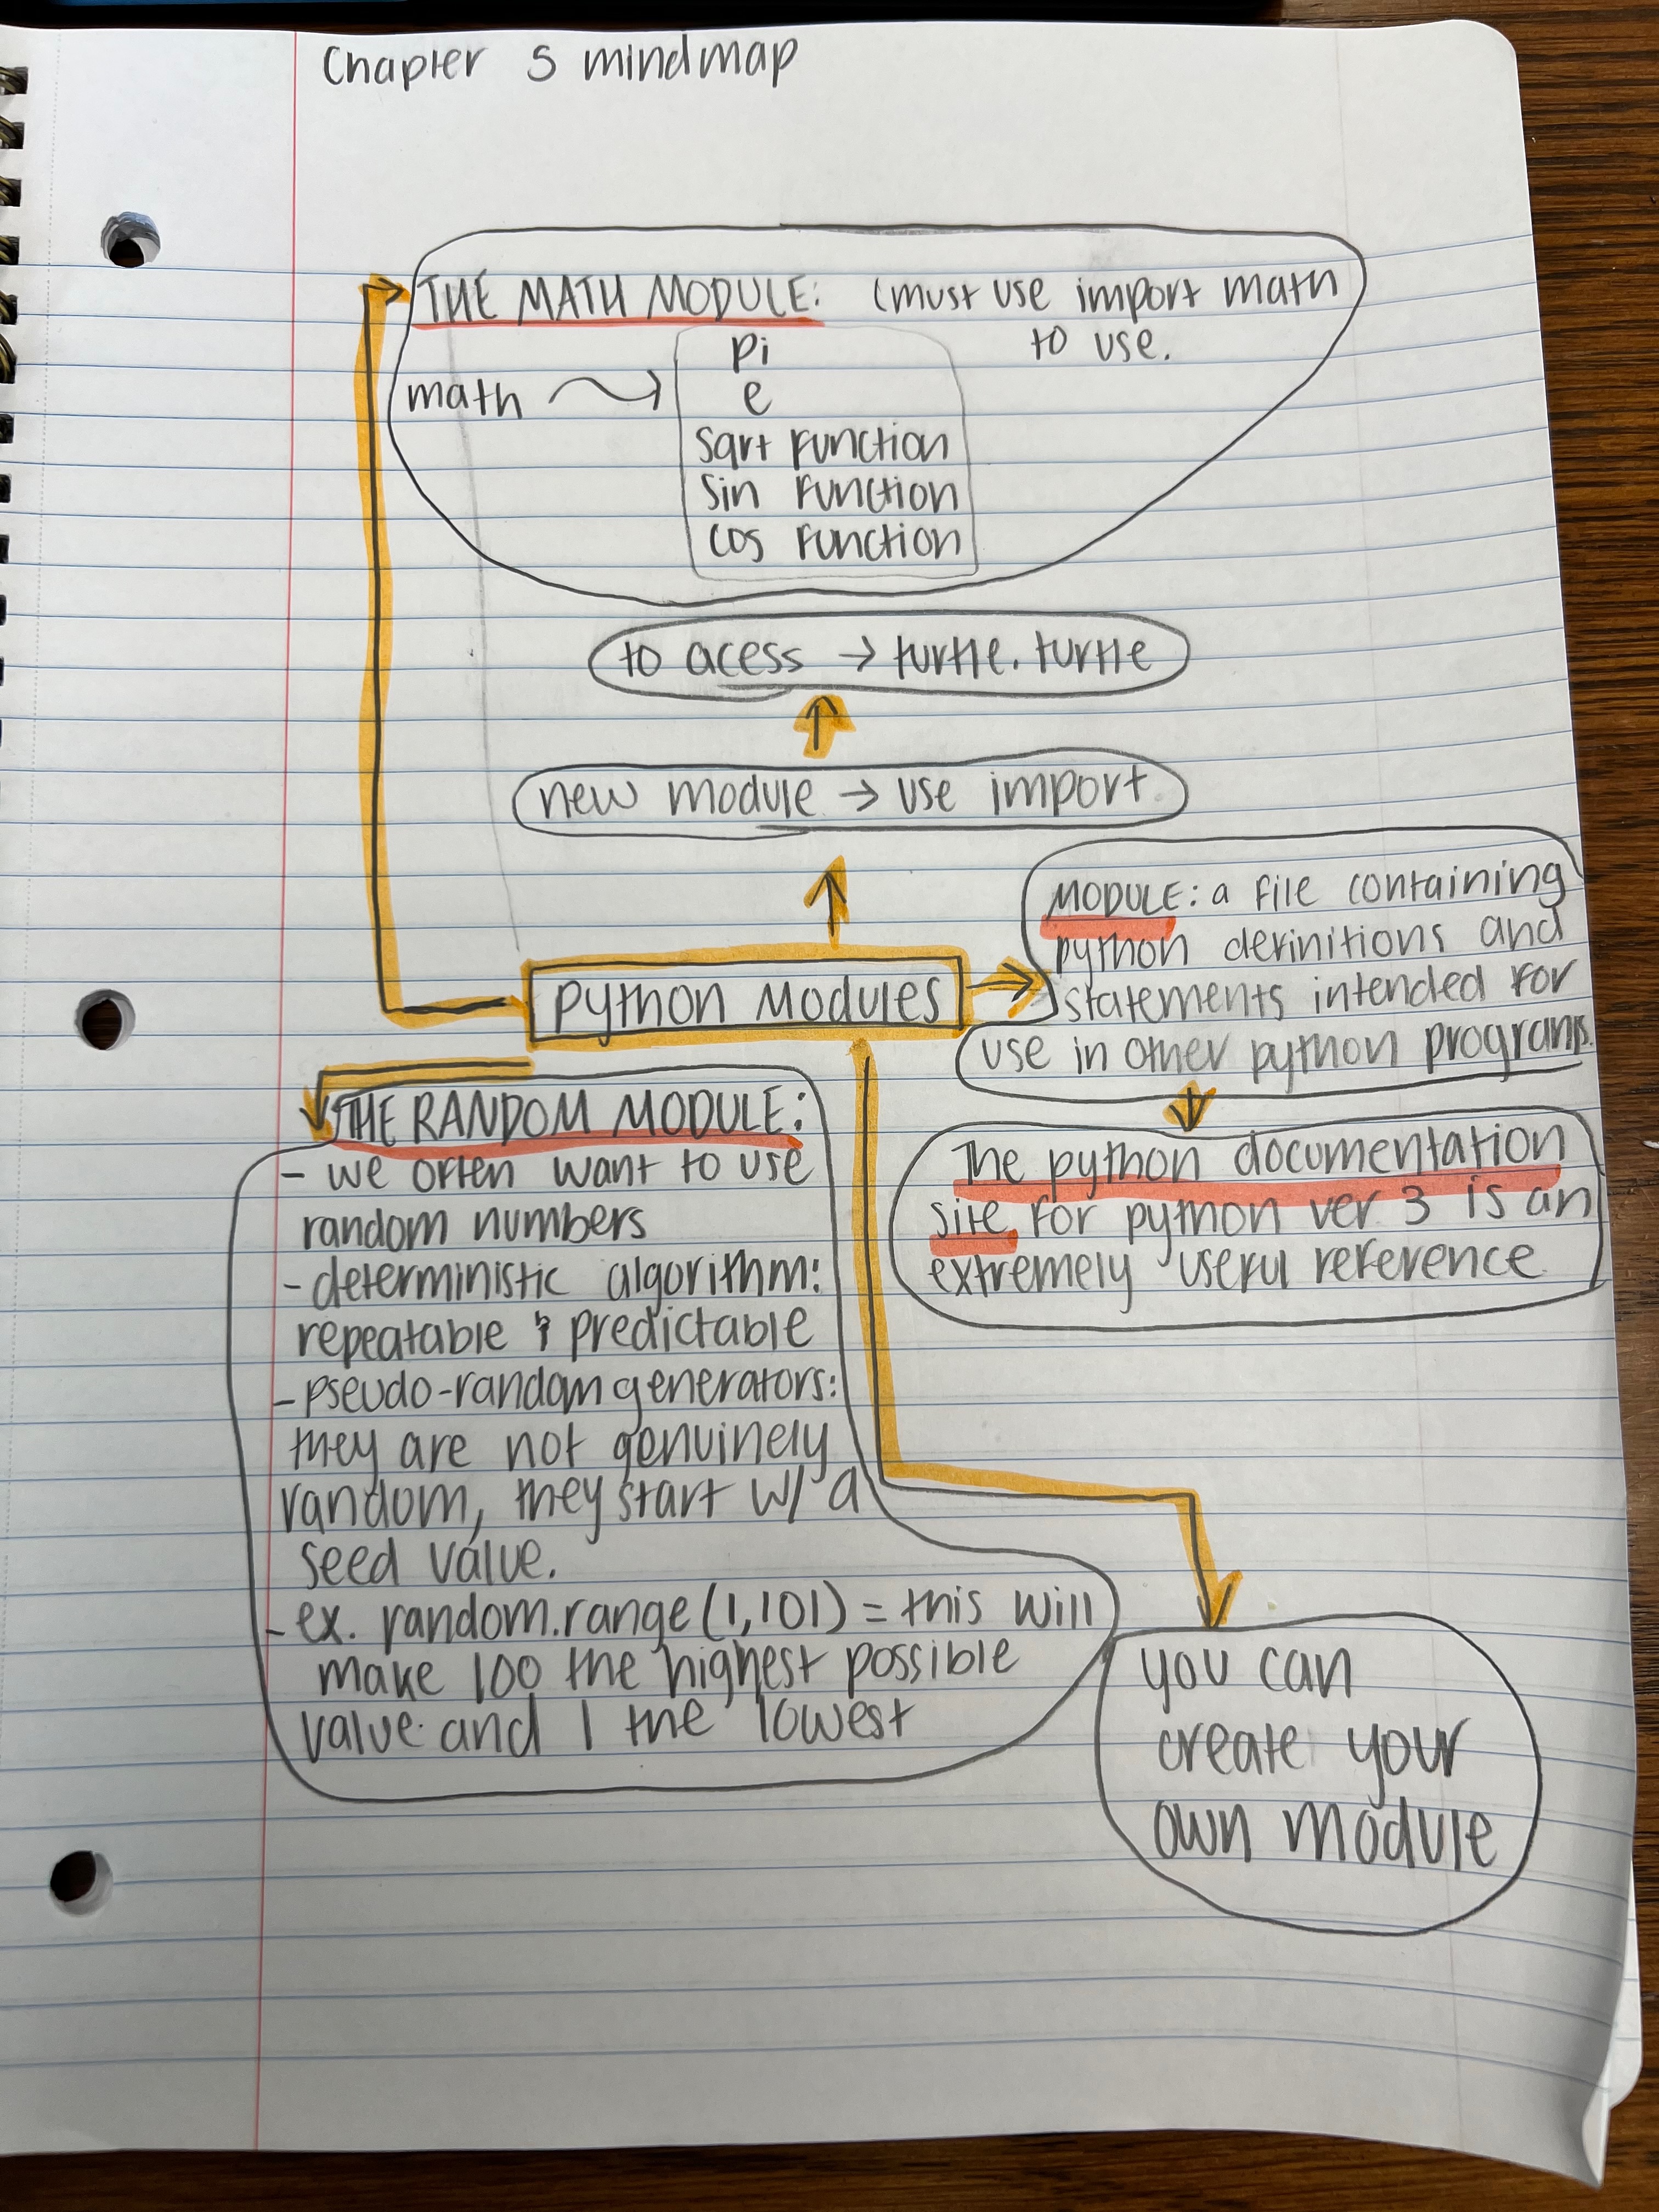 Chapter 5 mindmap
THE MATH MODULE: (must use import math
to use.
math → pi
e
sqrt function
sin function
cos function
to acess → turtle.turtle
new module → use import
MODULE: a file containing
python definitions and
statements intended for
use in other python programs.
Python Modules
The python documentation
site for python ver 3 is an
extremely useful reference
THE RANDOM MODULE:
- we often want to use
random numbers
- deterministic algorithm:
repeatable & predictable
- pseudo-random generators:
they are not genuinely
random, they start w/ a
seed value.
- ex. random.range(1,101) = this will
make 100 the highest possible
value and 1 the lowest
you can
create your
own module